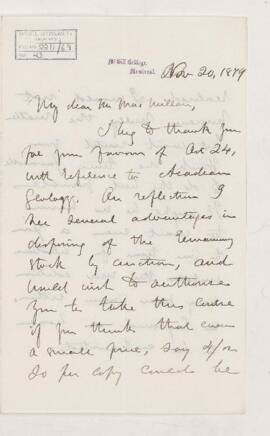 McGill College,
Montreal.
Nov 20, 1879
My dear Mr Macmillan,
I beg to thank you
for your favour of Oct 24,
with reference to Acadian
Geology. On reflection I
see several advantages in
disposing of the remaining
stock by auction, and
would wish to authorise
you to take this course
if you think that even
a small price, say
so per copy could be